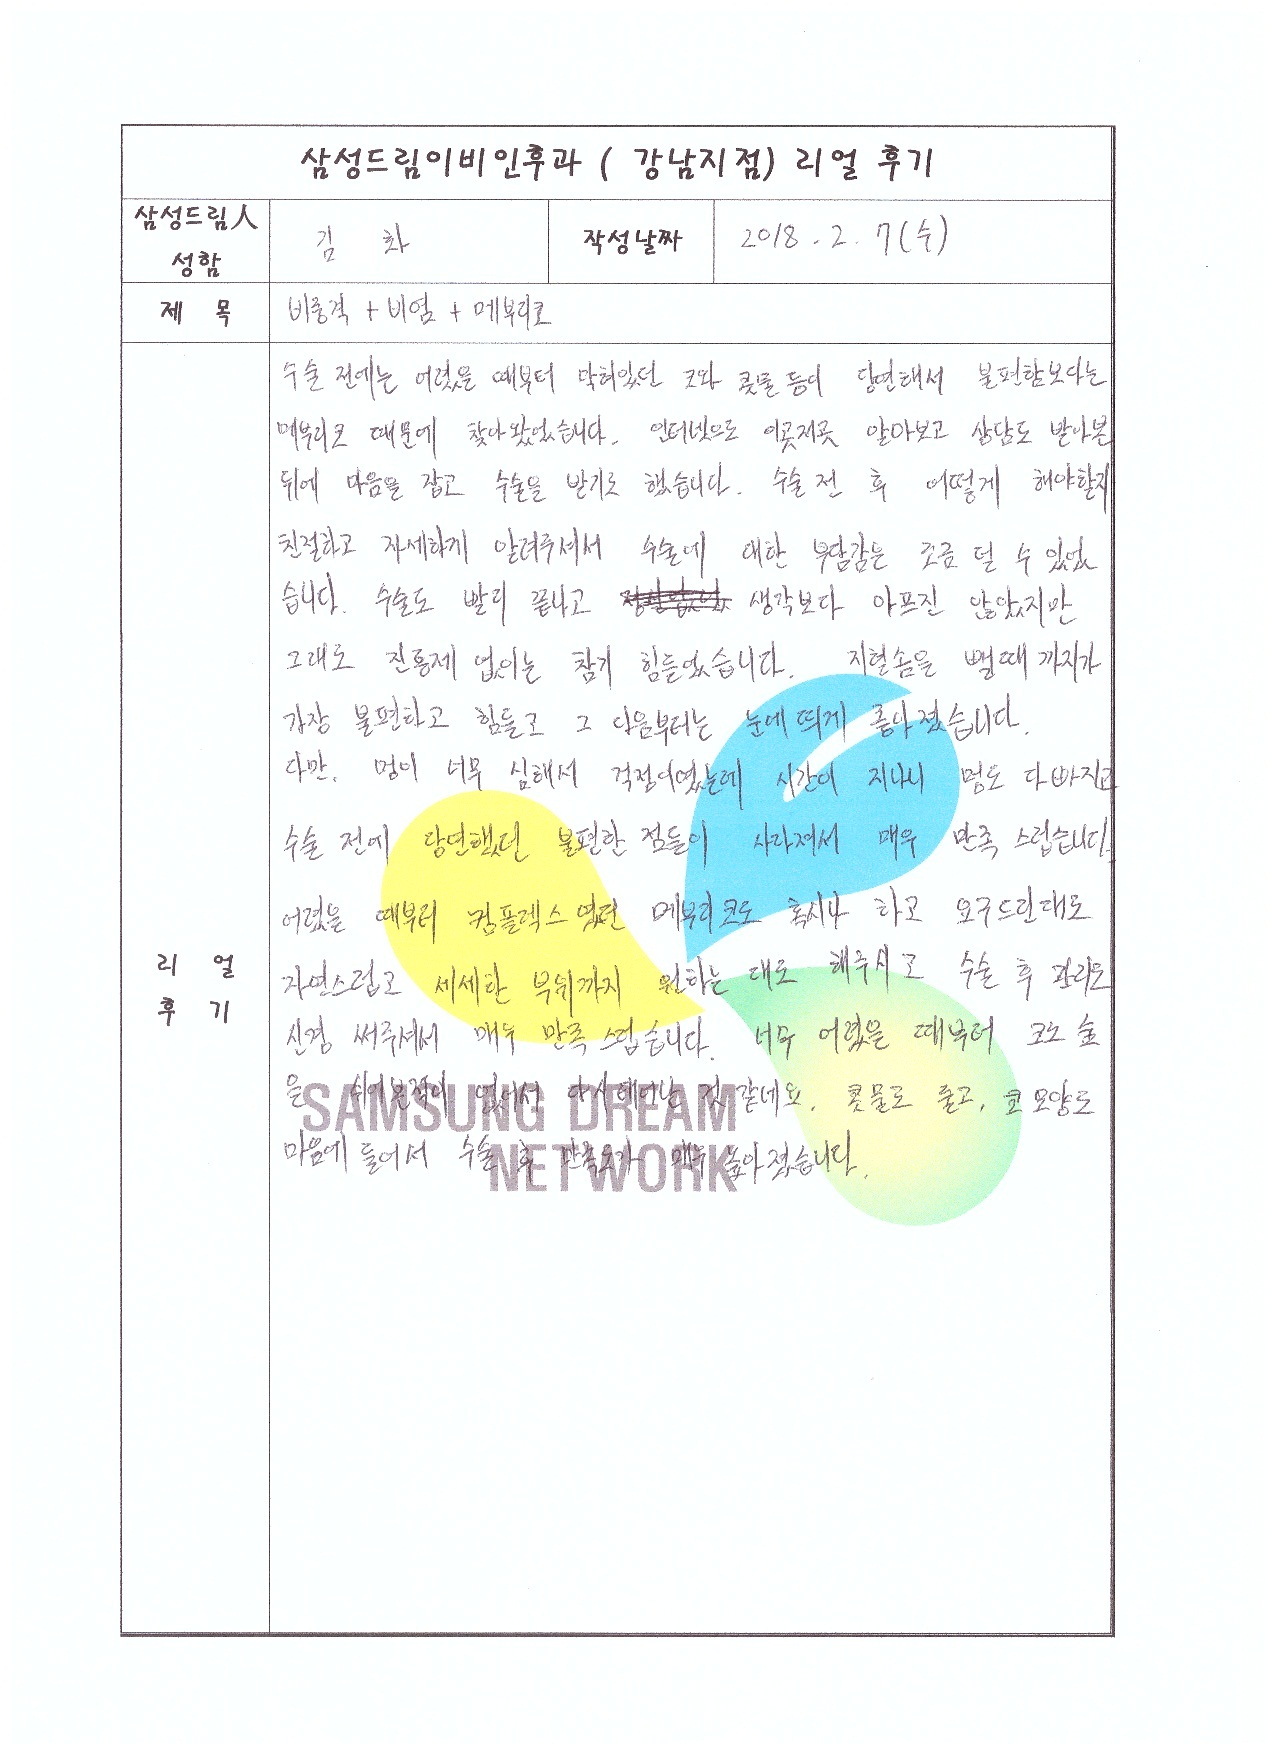 삼성드림이비인후과 ( 강남지점) 리얼 후기
삼성드림人 성함
김 화
작성날짜
2018. 2. 7(수)
제 목
비중격 + 비염 + 메부리코
리 얼 후 기
수술 전에는 어렸을 때부터 막혀있던 코와 콧물 등이 당연해서 불편함보다는
메부리코 때문에 찾아왔었습니다. 인터넷으로 이곳저곳 알아보고 상담도 받아본
뒤에 마음을 잡고 수술을 받기로 했습니다. 수술 전 후 어떻게 해야할지
친절하고 자세하게 알려주셔서 수술에 대한 부담감은 조금 덜 수 있었
습니다. 수술도 빨리 끝나고 생각보다 아프진 않았지만
그래도 진통제 없이는 참기 힘들었습니다. 지혈솜을 뺄때 까지가
가장 불편하고 힘들고 그 다음부터는 눈에 띄게 좋아졌습니다.
다만, 멍이 너무 심해서 걱정이였는데 시간이 지나니 멍도 다 빠지고
수술 전에 당연했던 불편한 점들이 사라져서 매우 만족 스럽습니다.
어렸을 때부터 컴플렉스 였던 메부리코도 혹시나 하고 요구드린대로
자연스럽고 세세한 부위까지 원하는 대로 해주시고 수술 후 관리도
신경 써주셔서 매우 만족 스럽습니다. 너무 어렸을 때부터 코로 숨
을 쉬어본적이 없어서 다시 태어난 것 같네요. 콧물도 줄고, 코 모양도
마음에 들어서 수술 후 만족도가 매우 높아졌습니다.
SAMSUNG DREAM
NETWORK